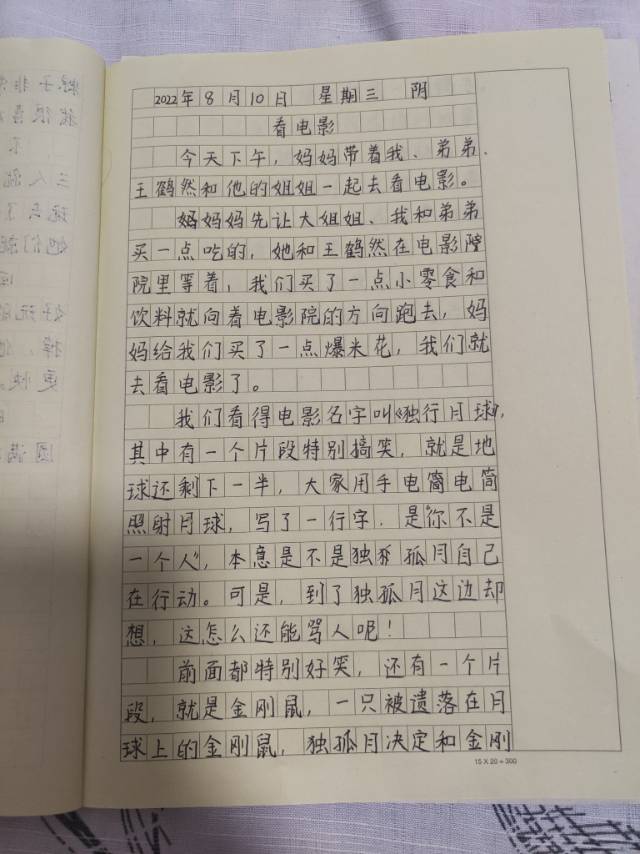 2022年8月10日 星期三 阴
看电影
今天下午，妈妈带着我、弟弟、
王鹤然和他的姐姐一起去看电影。
妈妈妈先让大姐姐、我和弟弟
买一点吃的，她和王鹤然在电影院
院里等着，我们买了一点小零食和
饮料就向着电影院的方向跑去，妈
妈给我们买了一点爆米花，我们就
去看电影了。
我们看得电影名字叫《独行月球》，
其中有一个片段特别搞笑，就是地
球还剩下一半，大家用手电筒电筒
照射月球，写了一行字，是“你不是
一个人”，本意是不是独孤孤月自己
在行动。可是，到了独孤月这边却
想，这怎么还能骂人呢！
前面都特别好笑，还有一个片
段，就是金刚鼠，一只被遗落在月
球上的金刚鼠，独孤月决定和金刚
15×20=300